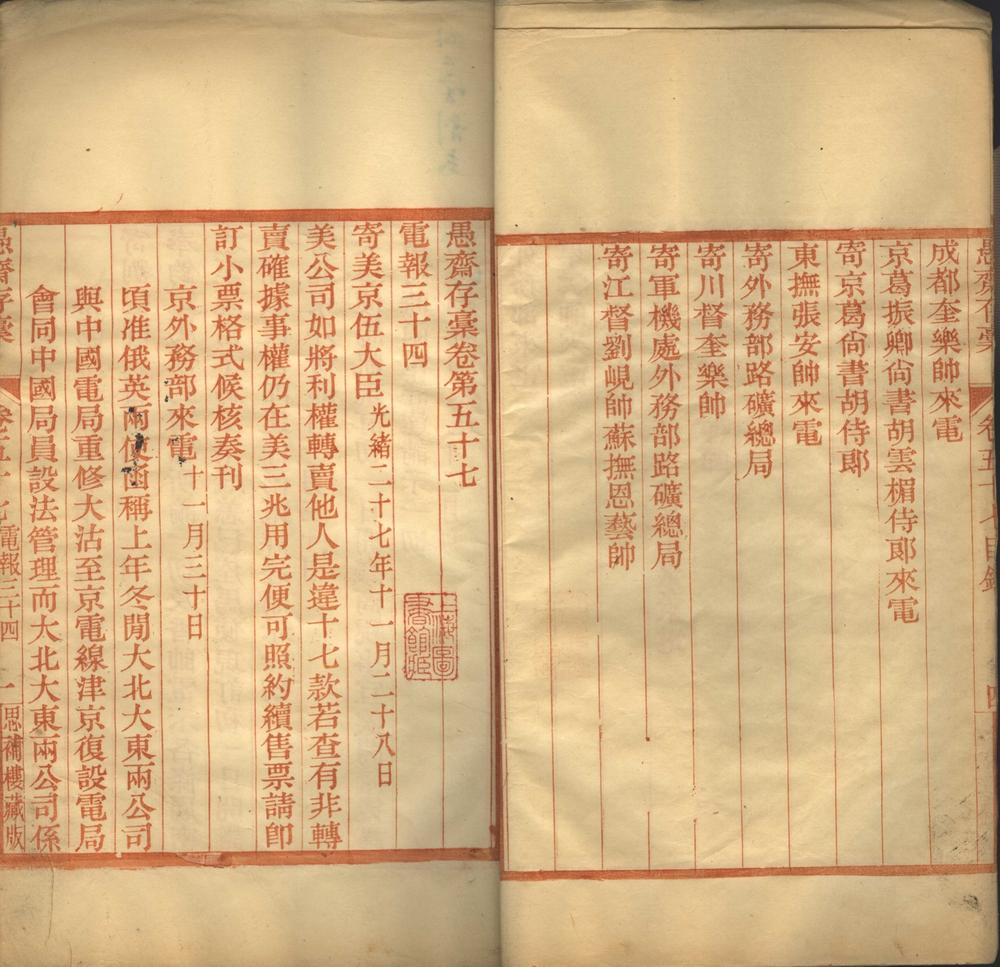 愚齋存稾 卷五十七目錄 四
成都奎樂帥來電
京葛振卿尙書胡雲楣侍郎來電
寄京葛尙書胡侍郎
東撫張安帥來電
寄外務部路礦總局
寄川督奎樂帥
寄軍機處外務部路礦總局
寄江督劉峴帥蘇撫恩藝帥
愚齋存稾卷第五十七
電報三十四
上海圖書館藏
寄美京伍大臣 光緒二十七年十一月二十八日
美公司如將利權轉賣他人是違十七款若查有非轉
賣確據事權仍在美三兆用完便可照約續售票請卽
訂小票格式候核奏刊
京外務部來電 十一月三十日
頃准俄英兩使函稱上年冬閒大北大東兩公司
與中國電局重修大沽至京電線津京復設電局
會同中國局員設法管理而大北大東兩公司係
愚齋存稾 卷五十七 電報三十四 一 思補樓藏版